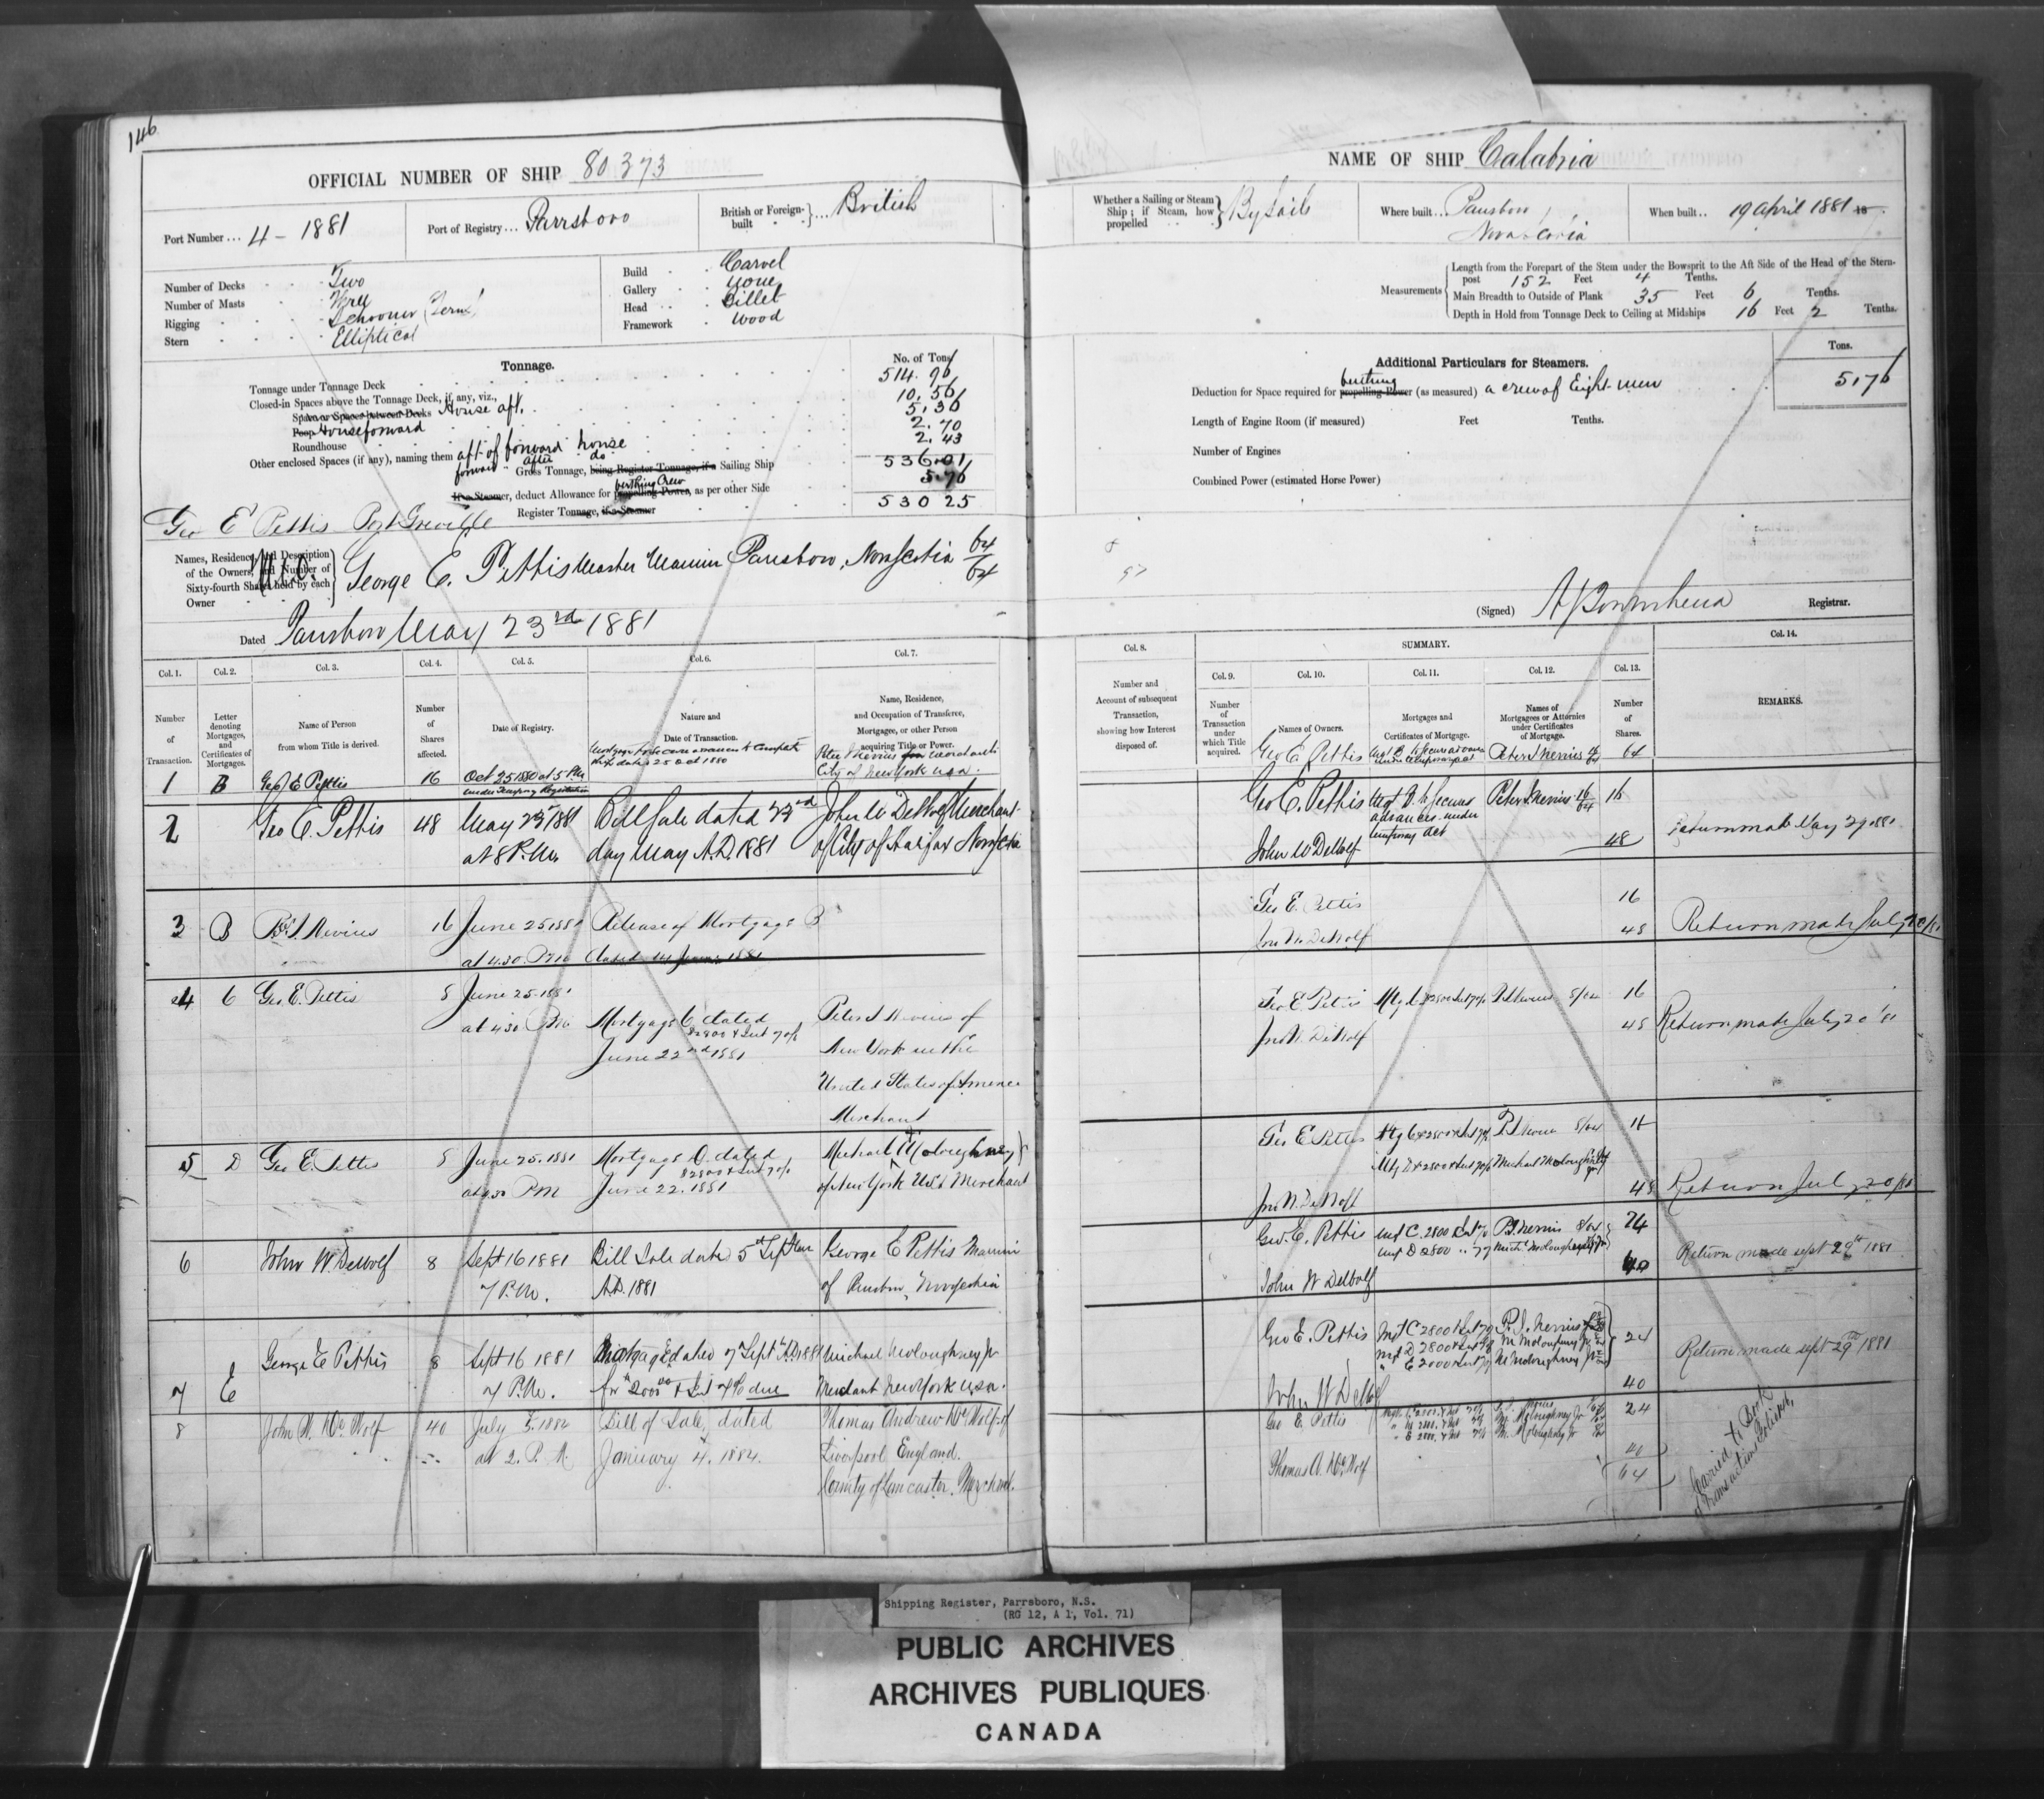 146
OFFICIAL NUMBER OF SHIP 80 373
Port Number ... 4 - 1881
Port of Registry ... Parrsboro
British or Foreign-built } ... British
Number of Decks Two
Number of Masts Three
Rigging Schooner (Tern)
Stern Elliptical
Build Carvel
Gallery None
Head Billet
Framework Wood
Tonnage.
No. of Tons
Tonnage under Tonnage Deck 514.96
Closed-in Spaces above the Tonnage Deck, if any, viz.,
Space or Spaces between Decks House aft. 10.56
Poop House forward 5.36
Roundhouse 2.70
Other enclosed Spaces (if any), naming them aft of forward house 2.43
forward " after do
Gross Tonnage, being Register Tonnage, if a Sailing Ship 536.01
If a Steamer, deduct Allowance for propelling Power, as per other Side berthing Crew 5.76
Register Tonnage, if a Steamer 530 25
Geo E Pettis Port Greville
Names, Residence, and Description of the Owners, and Number of Sixty-fourth Shares held by each Owner
M.O.
George E. Pettis Master Mariner Parrsboro, Nova Scotia 64/64
Dated Parrsboro May 23rd 1881
Col. 1. Col. 2. Col. 3. Col. 4. Col. 5. Col. 6. Col. 7.
Number of Transaction.
Letter denoting Mortgages, and Certificates of Mortgages.
Name of Person from whom Title is derived.
Number of Shares affected.
Date of Registry.
Nature and Date of Transaction.
Name, Residence, and Occupation of Transferee, Mortgagee, or other Person acquiring Title or Power.
1 B Geo E Pettis 16 Oct 25 1880 at 5 PM
under Temporary Registration
date 25 Oct 1880
Peter I Nevius Merchant
City of New York USA.
2 Geo E. Pettis 48 May 23 1881 Bill Sale dated 23rd John W DeWolf Merchant
at 8 P.M. day May A.D. 1881 of City of Halifax Nova Scotia
3 B P. I. Nevius 16 June 25 1881 Release of Mortgage B
at 4.30. PM dated 14 June 1881
4 C Geo. E. Pettis 8 June 25. 1881
at 4.30 PM Mortgage C dated Peter I Nevius of
$2800 & Int 7 o/o
June 22nd 1881 New York in the
United States of America
Merchant
5 D Geo E. Pettis 8 June 25. 1881 Mortgage D dated Michael Moloughney Jr
$2800 & Int 7 o/o
at 4.30 PM June 22. 1881 of New York USA Merchant
6 John W. DeWolf 8 Sept 16 1881 Bill Sale date 5th September George E Pettis Mariner
7 P.M. A.D. 1881 of Parrsboro, Nova Scotia
7 E George E Pettis 8 Sept 16 1881 Mortgage E dated 7 Sept A.D. 1881 Michael Moloughney Jr
7 P.M. for $2000 & Int 7% due Merchant New York USA.
8 John W. De Wolf 40 July 5. 1882 Bill of Sale, dated Thomas Andrew De Wolf of
at 2. P. M. January 4. 1882. Liverpool England.
County of Lancaster. Merchant.
NAME OF SHIP Calabria
Whether a Sailing or Steam Ship; if Steam, how propelled } By Sails
Where built .. Parrsboro Nova Scotia
When built .. 19 April 1881 18
Measurements
Length from the Forepart of the Stem under the Bowsprit to the Aft Side of the Head of the Stern-post 152 Feet 4 Tenths.
Main Breadth to Outside of Plank 35 Feet 6 Tenths.
Depth in Hold from Tonnage Deck to Ceiling at Midships 16 Feet 2 Tenths.
Additional Particulars for Steamers.
Tons.
Deduction for Space required for propelling Power (as measured) berthing a crew of Eight men 5.76
Length of Engine Room (if measured) Feet Tenths.
Number of Engines
Combined Power (estimated Horse Power)
(Signed) Registrar.
SUMMARY.
Col. 8. Col. 9. Col. 10. Col. 11. Col. 12. Col. 13. Col. 14.
Number and Account of subsequent Transaction, showing how Interest disposed of.
Number of Transaction under which Title acquired.
Names of Owners.
Mortgages and Certificates of Mortgage.
Names of Mortgagees or Attornies under Certificates of Mortgage.
Number of Shares.
REMARKS.
Geo E. Pettis Peter I Nevius 64
Geo E. Pettis Mgt B to secure Peter I. Nevius 16/64 16
advances under
temporary Act
John W DeWolf 48 Return made May 29 1881
Geo E. Pettis 16
Jno W. DeWolf 48 Return made July 20/81
Geo E Pettis Mtg C $2800 Int 7% P I Nevius 8/64 16
Jno W. DeWolf 48 Return made July 20 '81
Geo E Pettis Mtg C $2800 & Int 7% P I Nevius 8/64 16
Mtg D $2800 & Int 7% Michael Moloughney Jr
Jno W. DeWolf 48 Return July 20/81
Geo. E. Pettis Mgt C. 2800 & Int 7% P.I. Nevius 8/64 24
Mgt D 2800 " 7% Mich. Moloughney Jr
John W DeWolf 40 Return made sept 29th 1881
Geo E. Pettis Mgt C 2800 & Int 7% P. I. Nevius 24
Mgt D 2800 & Int 7% M Moloughney Jr
" E 2000 & Int 7% M Moloughney Jr
John W DeWolf 40 Return made sept 29th 1881
Geo E. Pettis 24
M. Moloughney Jr
M. Moloughney Jr
Thomas A. De Wolf 40
64
Carried to Book
of Transactions
Shipping Register, Parrsboro, N.S.
(RG 12, A 1, Vol. 71)
PUBLIC ARCHIVES
ARCHIVES PUBLIQUES
CANADA